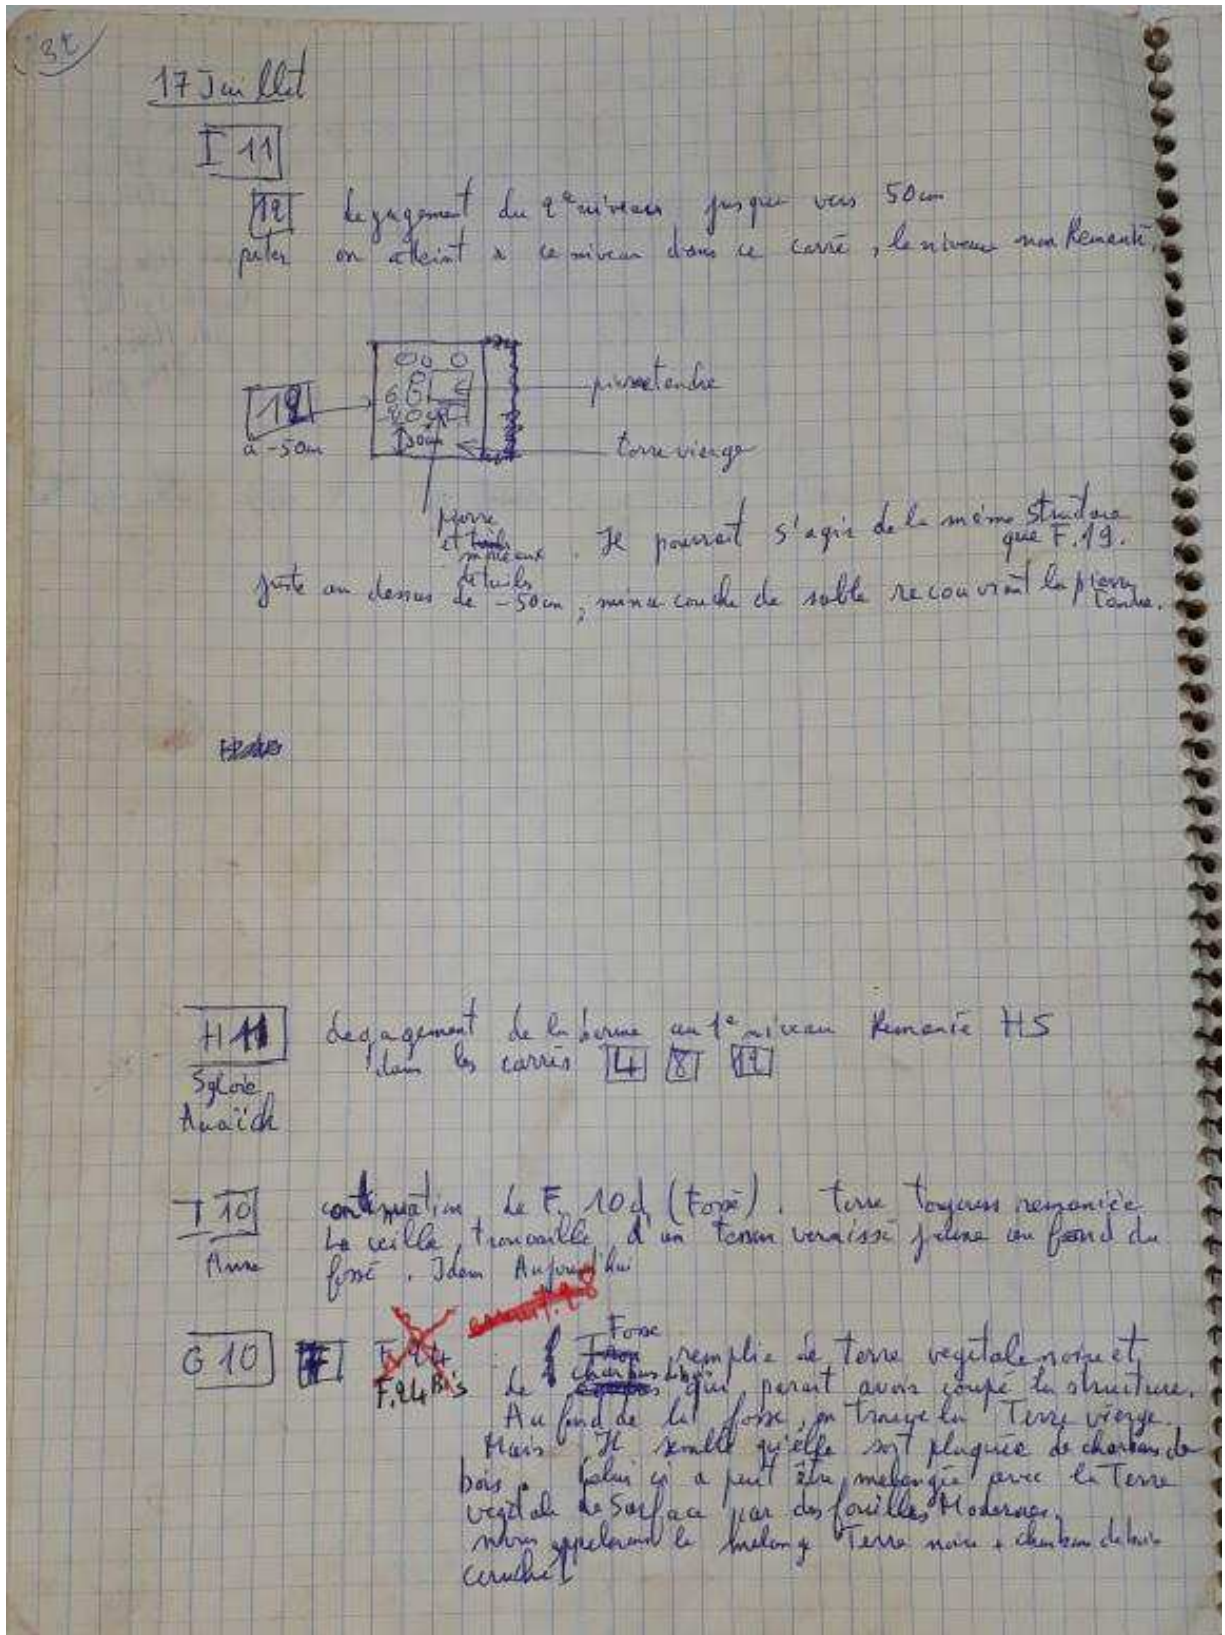 32
17 Juillet
I 11
12 degagement du 2e niveau jusque vers 50cm
on atteint a ce niveau dans ce carré, le niveau non Remanié.
pierre tendre
12
à -50cm
30cm
terre vierge
pierre
et morceaux
de tuiles
. Il pourrait s'agir de la même structure
que F.19.
juste au dessus de -50cm, mince couche de sable recouvrant la pierre
tendre.
H 11 degagement de la berme au 1e niveau Remanié HS
dans les carrés 4 8 12
Sylvie
Anaïck
I 10 continuation de F. 10d (Fossé). terre toujours remaniée
La veille, trouvaille d'un tesson vernissé jaune au fond du
Anne fossé. Idem Aujourd'hui
Fosse
G 10 F.24 remplie de terre vegetale noire et
F.24 Bis de charbon de bois qui parait avoir coupé la structure.
Au fond de la fosse, on trouve la Terre vierge.
Mais Il semble qu'elle soit plaquée de charbon de
bois. Celui ci a peut être melangé avec la Terre
vegetale de Surface par des fouilles Modernes.
nous appelerons le melange Terre noire + charbon de bois